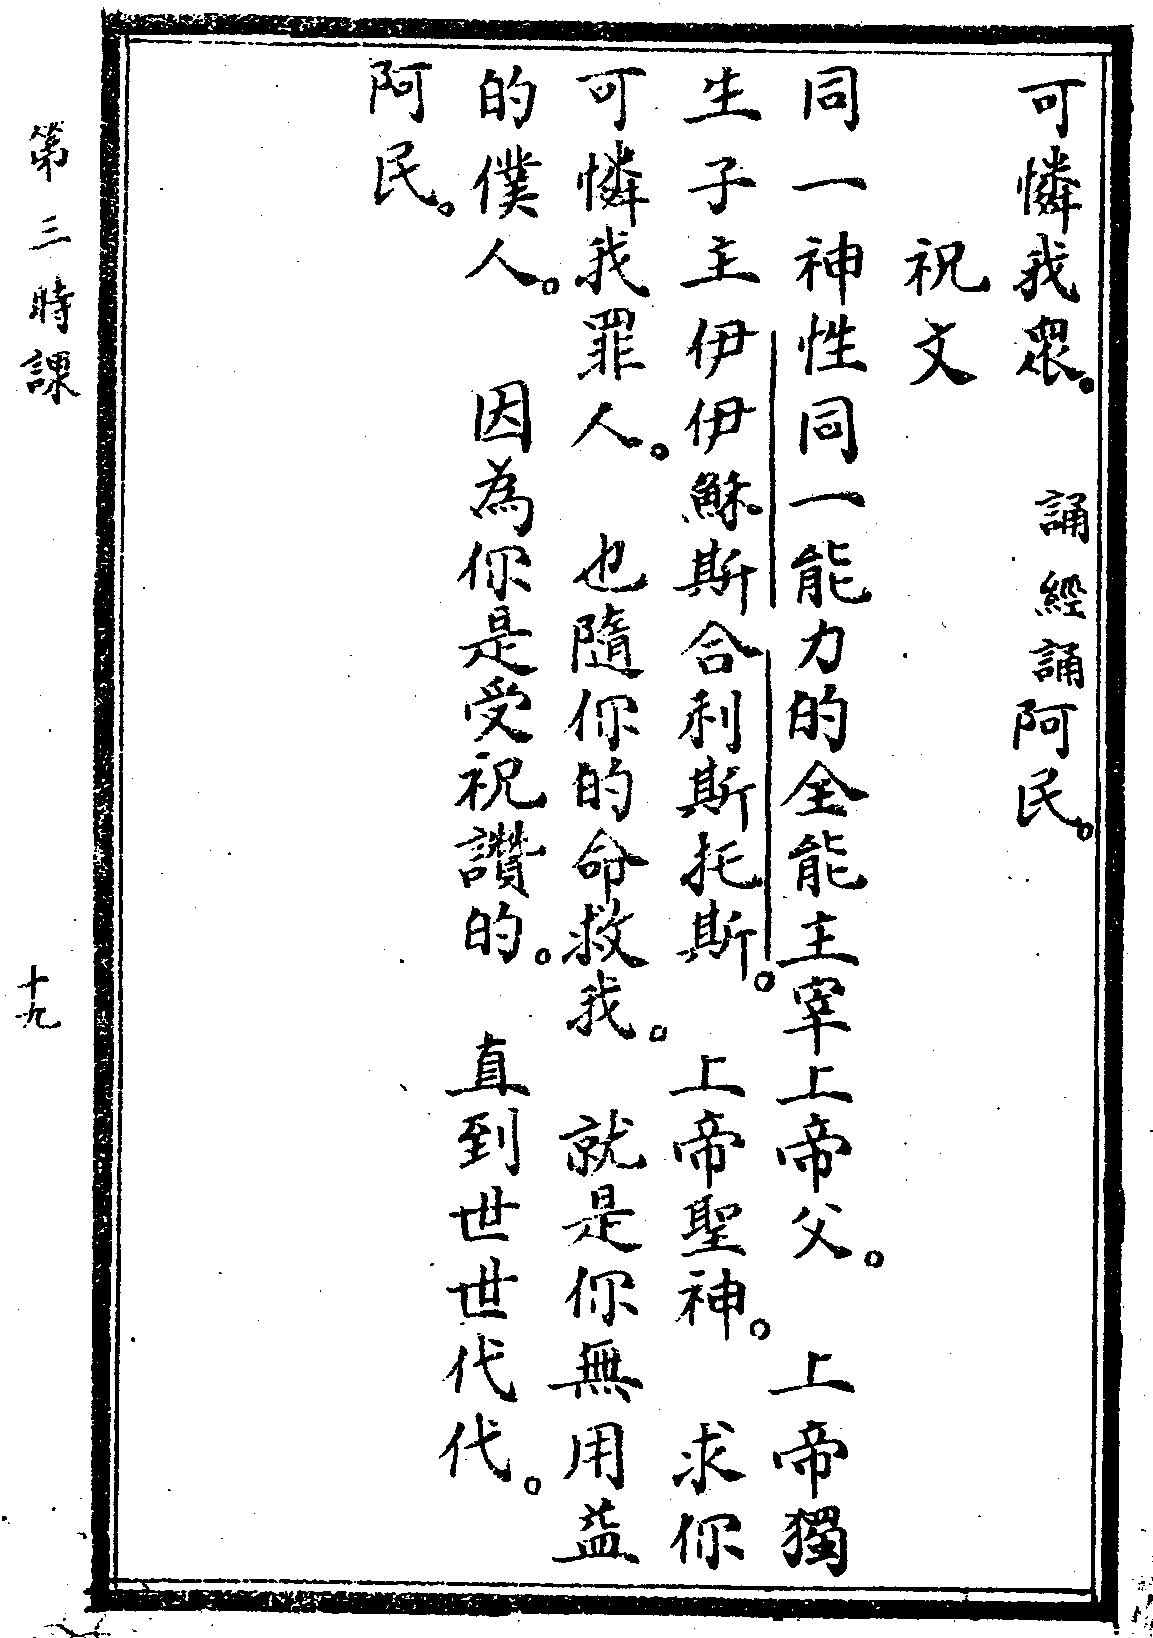 可憐我眾。 誦經誦阿民。
祝文
同一神性同一能力的全能主宰上帝父。 上帝獨
生子主伊伊穌斯合利斯托斯。 上帝聖神。 求你
可憐我罪人。 也隨你的命救我。 就是你無用益
的僕人。 因為你是受祝讚的。 直到世世代代。
阿民。
第三時課
十九